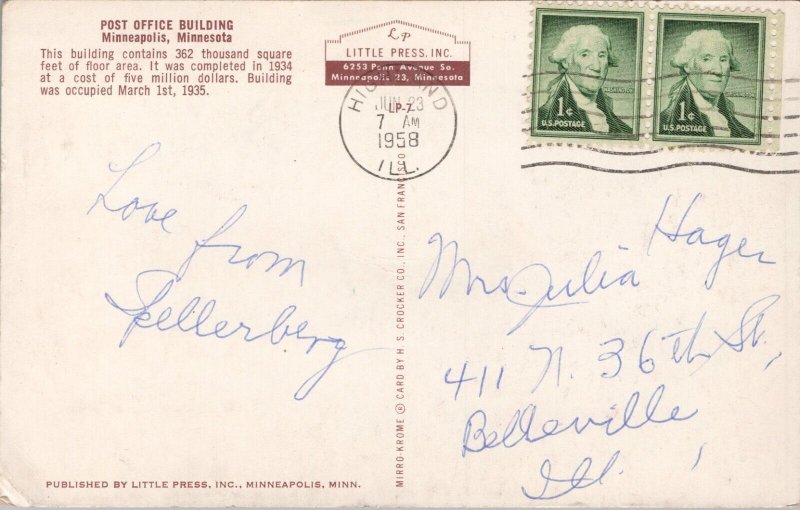 POST OFFICE BUILDING
Minneapolis, Minnesota
This building contains 362 thousand square
feet of floor area. It was completed in 1934
at a cost of five million dollars. Building
was occupied March 1st, 1935.
LP
LITTLE PRESS, INC.
6253 Penn Avenue So.
Minneapolis 23, Minnesota
LP-7
HIGHLAND
JUN 23
7 AM
1958
ILL.
WASHINGTON
1¢
U.S. POSTAGE
1¢
U.S. POSTAGE
Love from
Spellerberg
Mrs. Julia Hager
411 N. 36th St,
Belleville,
Ill.
MIRRO-KROME ® CARD BY H. S. CROCKER CO., INC., SAN FRANCISCO
PUBLISHED BY LITTLE PRESS, INC., MINNEAPOLIS, MINN.